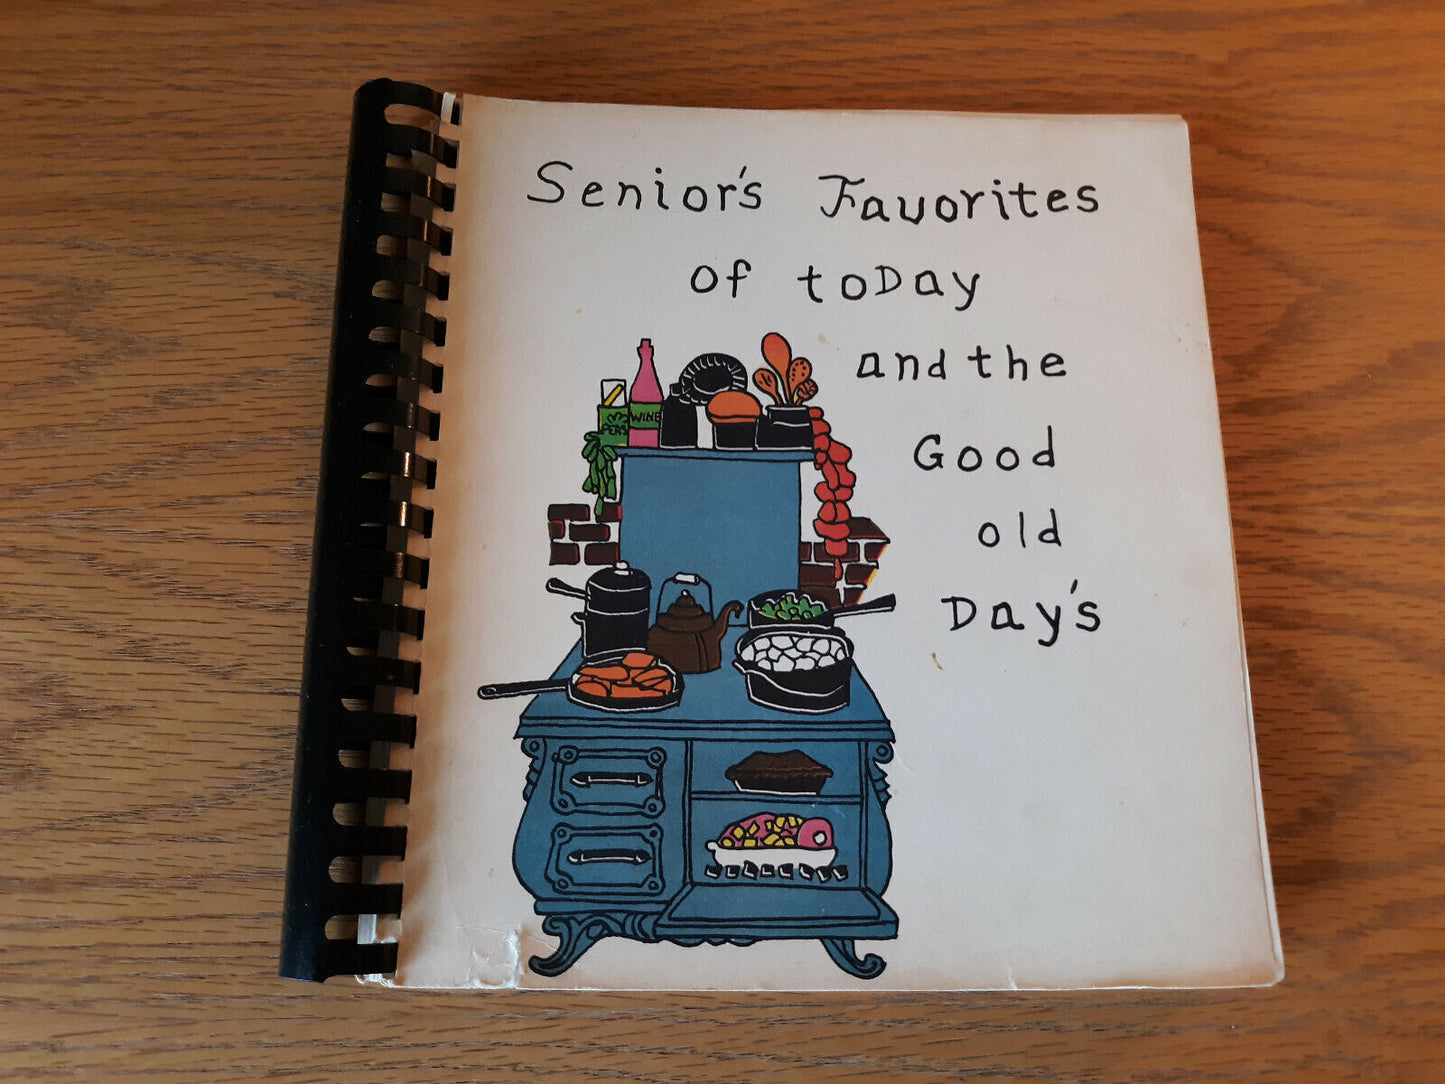 Senior's Favorites
of toDay
and the
Good
old
Day's
WINE
PEAS